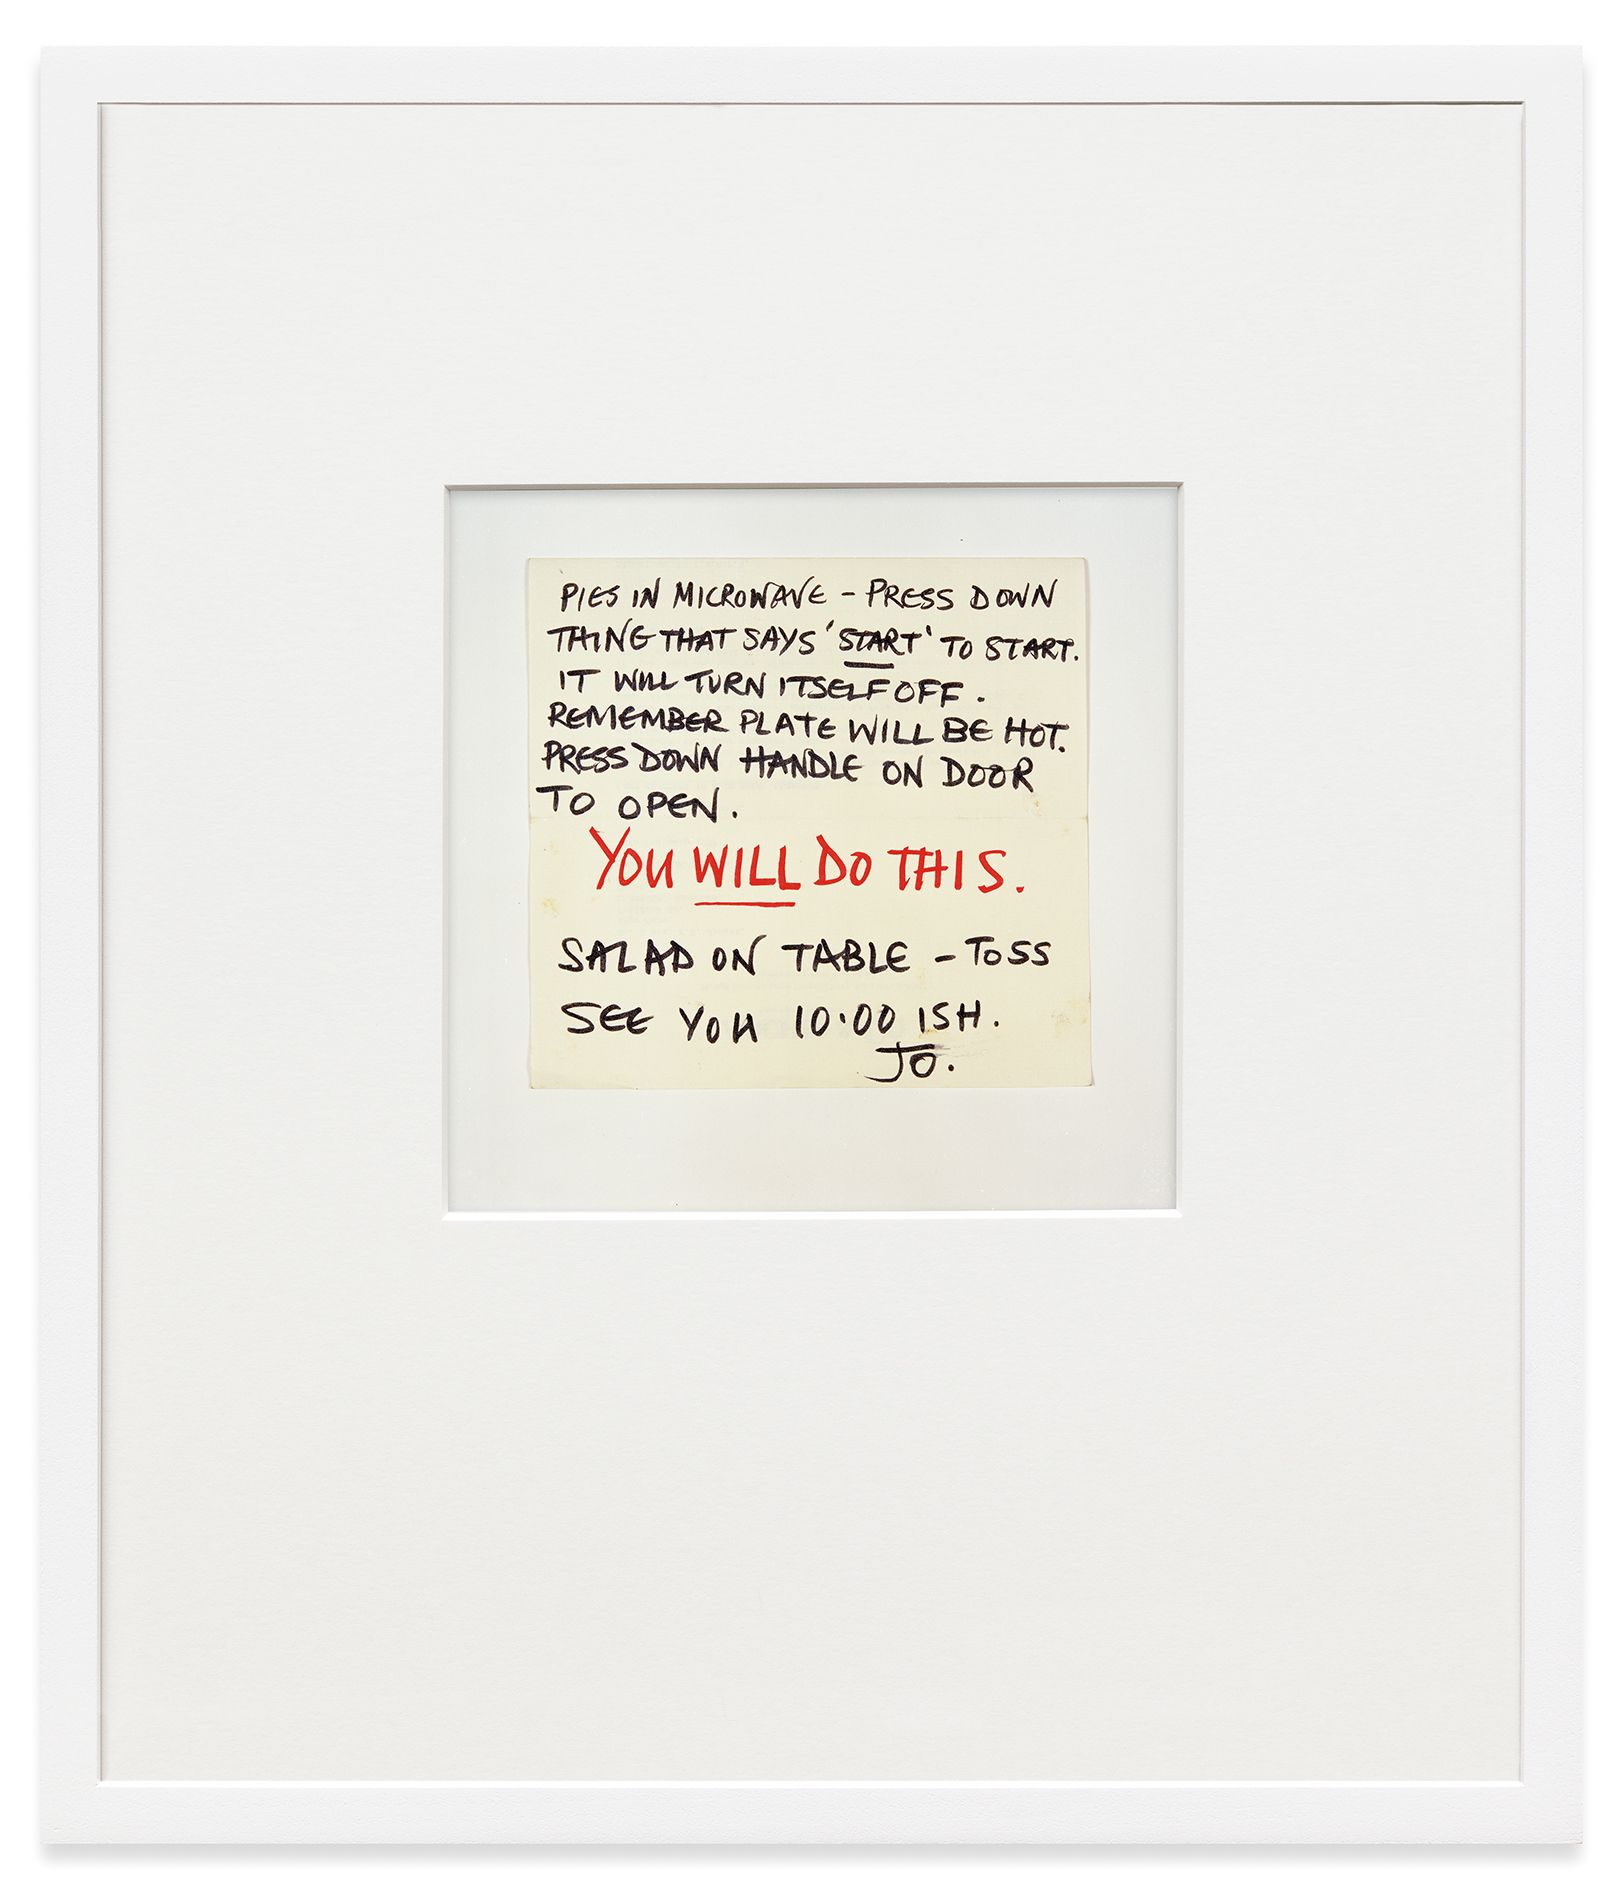 PIES IN MICROWAVE - PRESS DOWN
THING THAT SAYS 'START' TO START.
IT WILL TURN ITSELF OFF.
REMEMBER PLATE WILL BE HOT.
PRESS DOWN HANDLE ON DOOR
TO OPEN.
YOU WILL DO THIS.
SALAD ON TABLE - TOSS
SEE YOU 10.00 ISH.
JO.